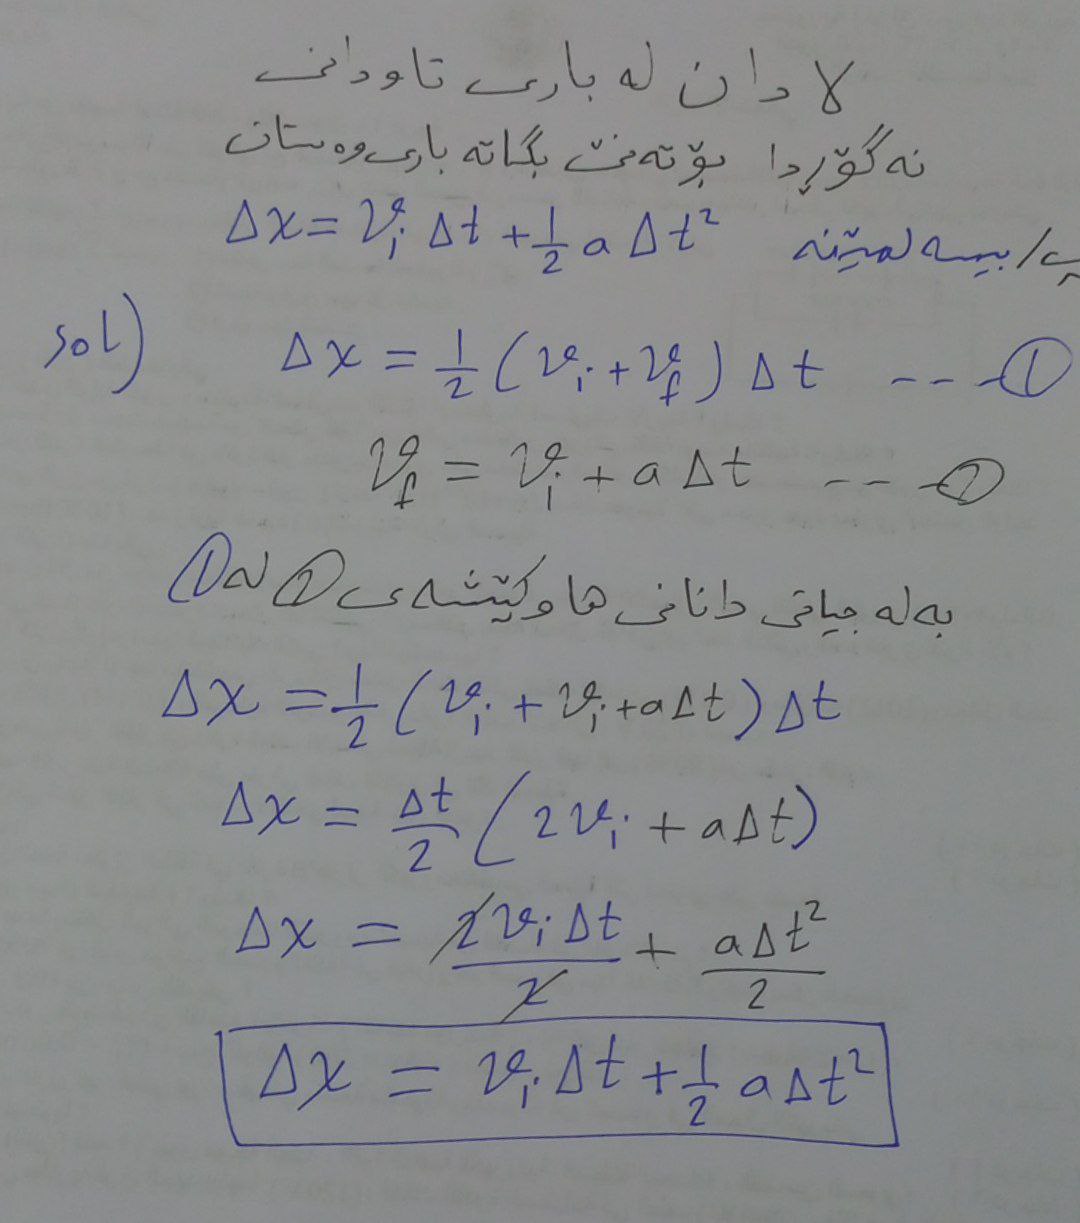 لادان لە باری تاودانی
نەگۆڕدا بۆتەنێ بگاتە باری وەستان
پ/ بیسەلمێنە Δx = vᵢ Δt + ½ a Δt²
sol) Δx = ½ (vᵢ + v_f) Δt --- ①
v_f = vᵢ + a Δt --- ②
بە لە جیاتی دانانی هاوکێشەی ② لە ①
Δx = ½ (vᵢ + vᵢ + aΔt) Δt
Δx = Δt/2 (2vᵢ + aΔt)
Δx = 2vᵢ Δt/2 + aΔt²/2
Δx = vᵢ Δt + ½ aΔt²